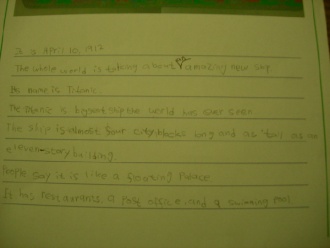 It is April 10, 1912
The whole world is talking about an amazing new ship
Its name is Titanic.
The titanic is biggest ship the world has ever seen
The ship is almost four city blocks long and as tall as an
eleven-story building.
People say it is like a floating Palace
It has restaurants, a post office, and a swimming pool